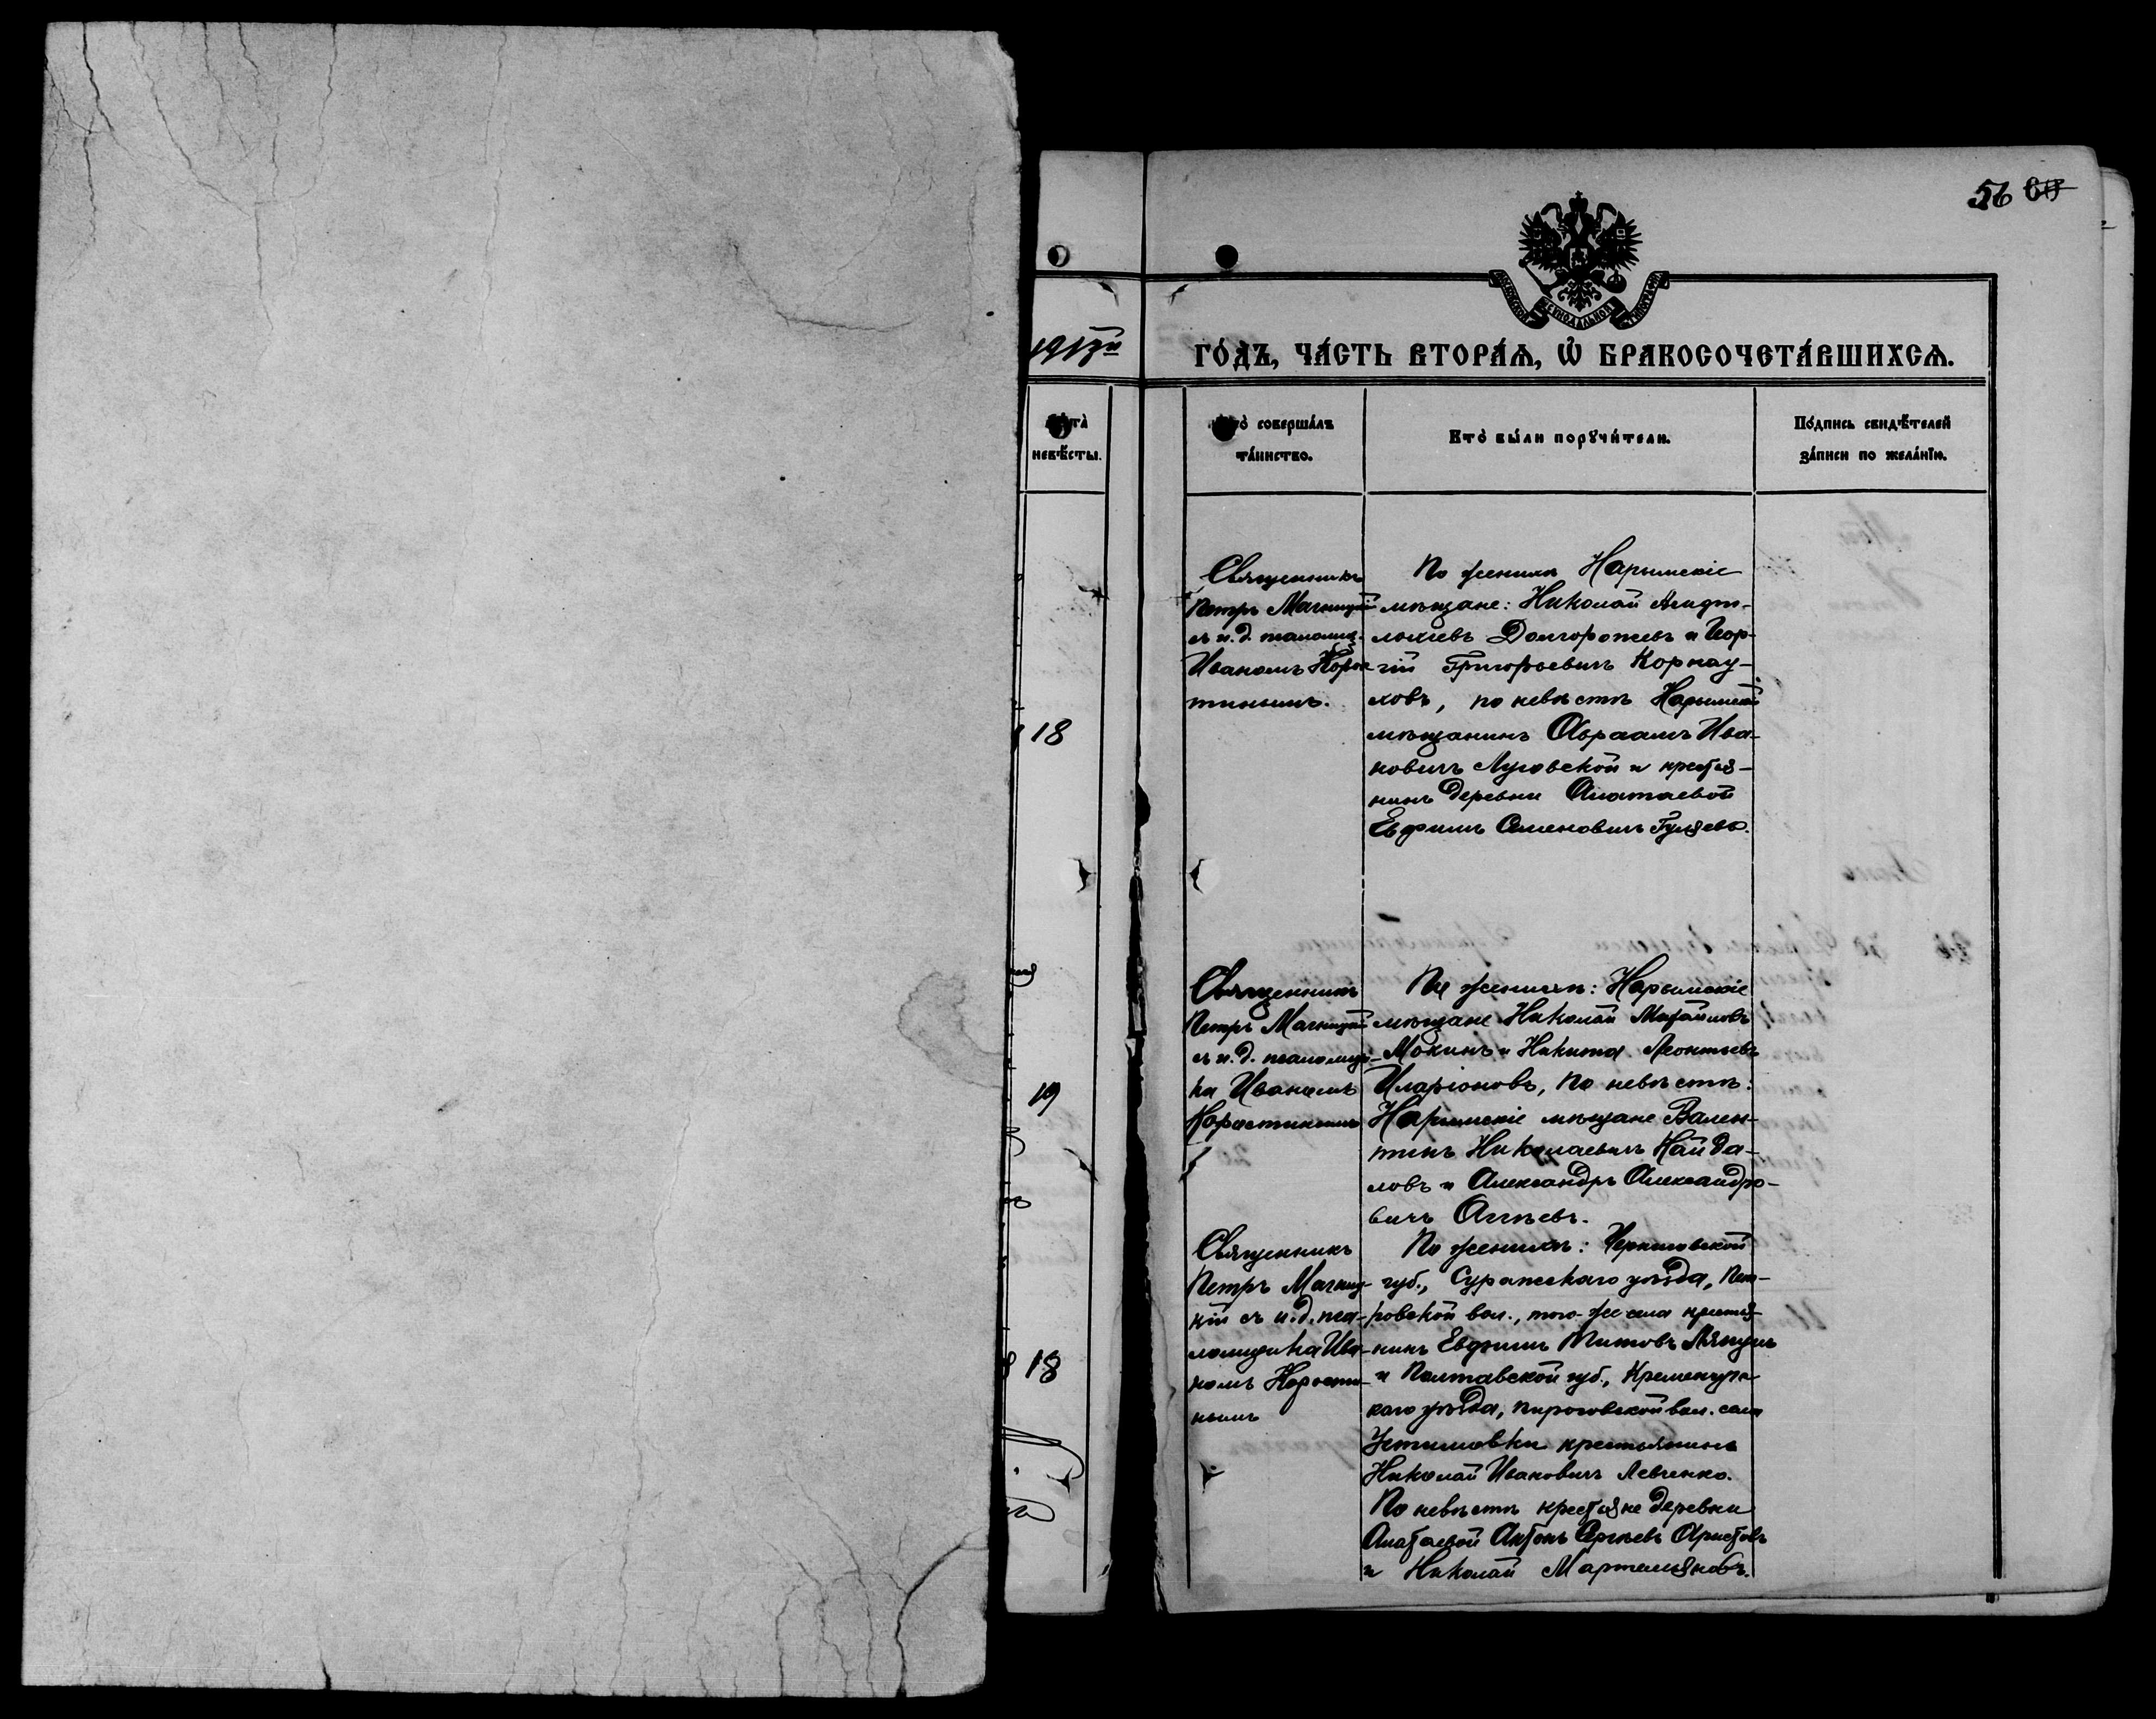 56 60
МОСКОВСКОЙ СѴНОДАЛЬНОЙ ТИПОГРАФІИ
1917й
го́дъ, ча́сть втора́ѧ, ѡ҆ бракосочета́вшихсѧ.
Лѣ́та̀
невѣ́сты.
Кто̀ соверша́лъ
та́инство.
Кто̀ бы́ли порꙋчи́тели.
По́дпись свидѣ́телей
за́писи по жела́нїю.
18
Священникъ
Петръ Магницкій
съ и.д. псаломщ.
Иваномъ Корос-
тинымъ.
По женихѣ Нарымскіе
мѣщане: Николай
Долгорожевъ и Геор-
гій Григорьевичъ Корнау-
ховъ, по невѣстѣ Нарымскій
мѣщанинъ Авраамъ Ива-
новичъ Луговской и крестья-
нинъ деревни Алатаевой
Евфимъ Семеновичъ Гуляевъ.
19
Священникъ
Петръ Магницкій
съ и.д. псаломщи-
ка Иваномъ
Коростинымъ
По женихѣ: Нарымскіе
мѣщане Николай Михайловъ
Мокинъ и Никита Леонтьевъ
Иларіоновъ, по невѣстѣ:
Нарымскіе мѣщане Вален-
тинъ Николаевичъ Найда-
ловъ и Александръ Александро-
вичъ Агѣевъ.
18
Священникъ
Петръ Магниц-
кій съ и.д. пса-
ломщика Ива-
номъ Корости-
нымъ
По женихѣ: Черниговской
губ., Суражскаго уѣзда, Пет-
ровской вол., того-же села крестья-
нинъ Евфимъ Титовъ
и Полтавской губ., Кременчуг-
скаго уѣзда, Пироговской вол. села
Устимовки крестьянинъ
Николай Ивановичъ Левченко.
По невѣстѣ крестьяне деревни
Алатаевой Антонъ Сергѣевъ Аристовъ
и Николай Мартемьяновъ.